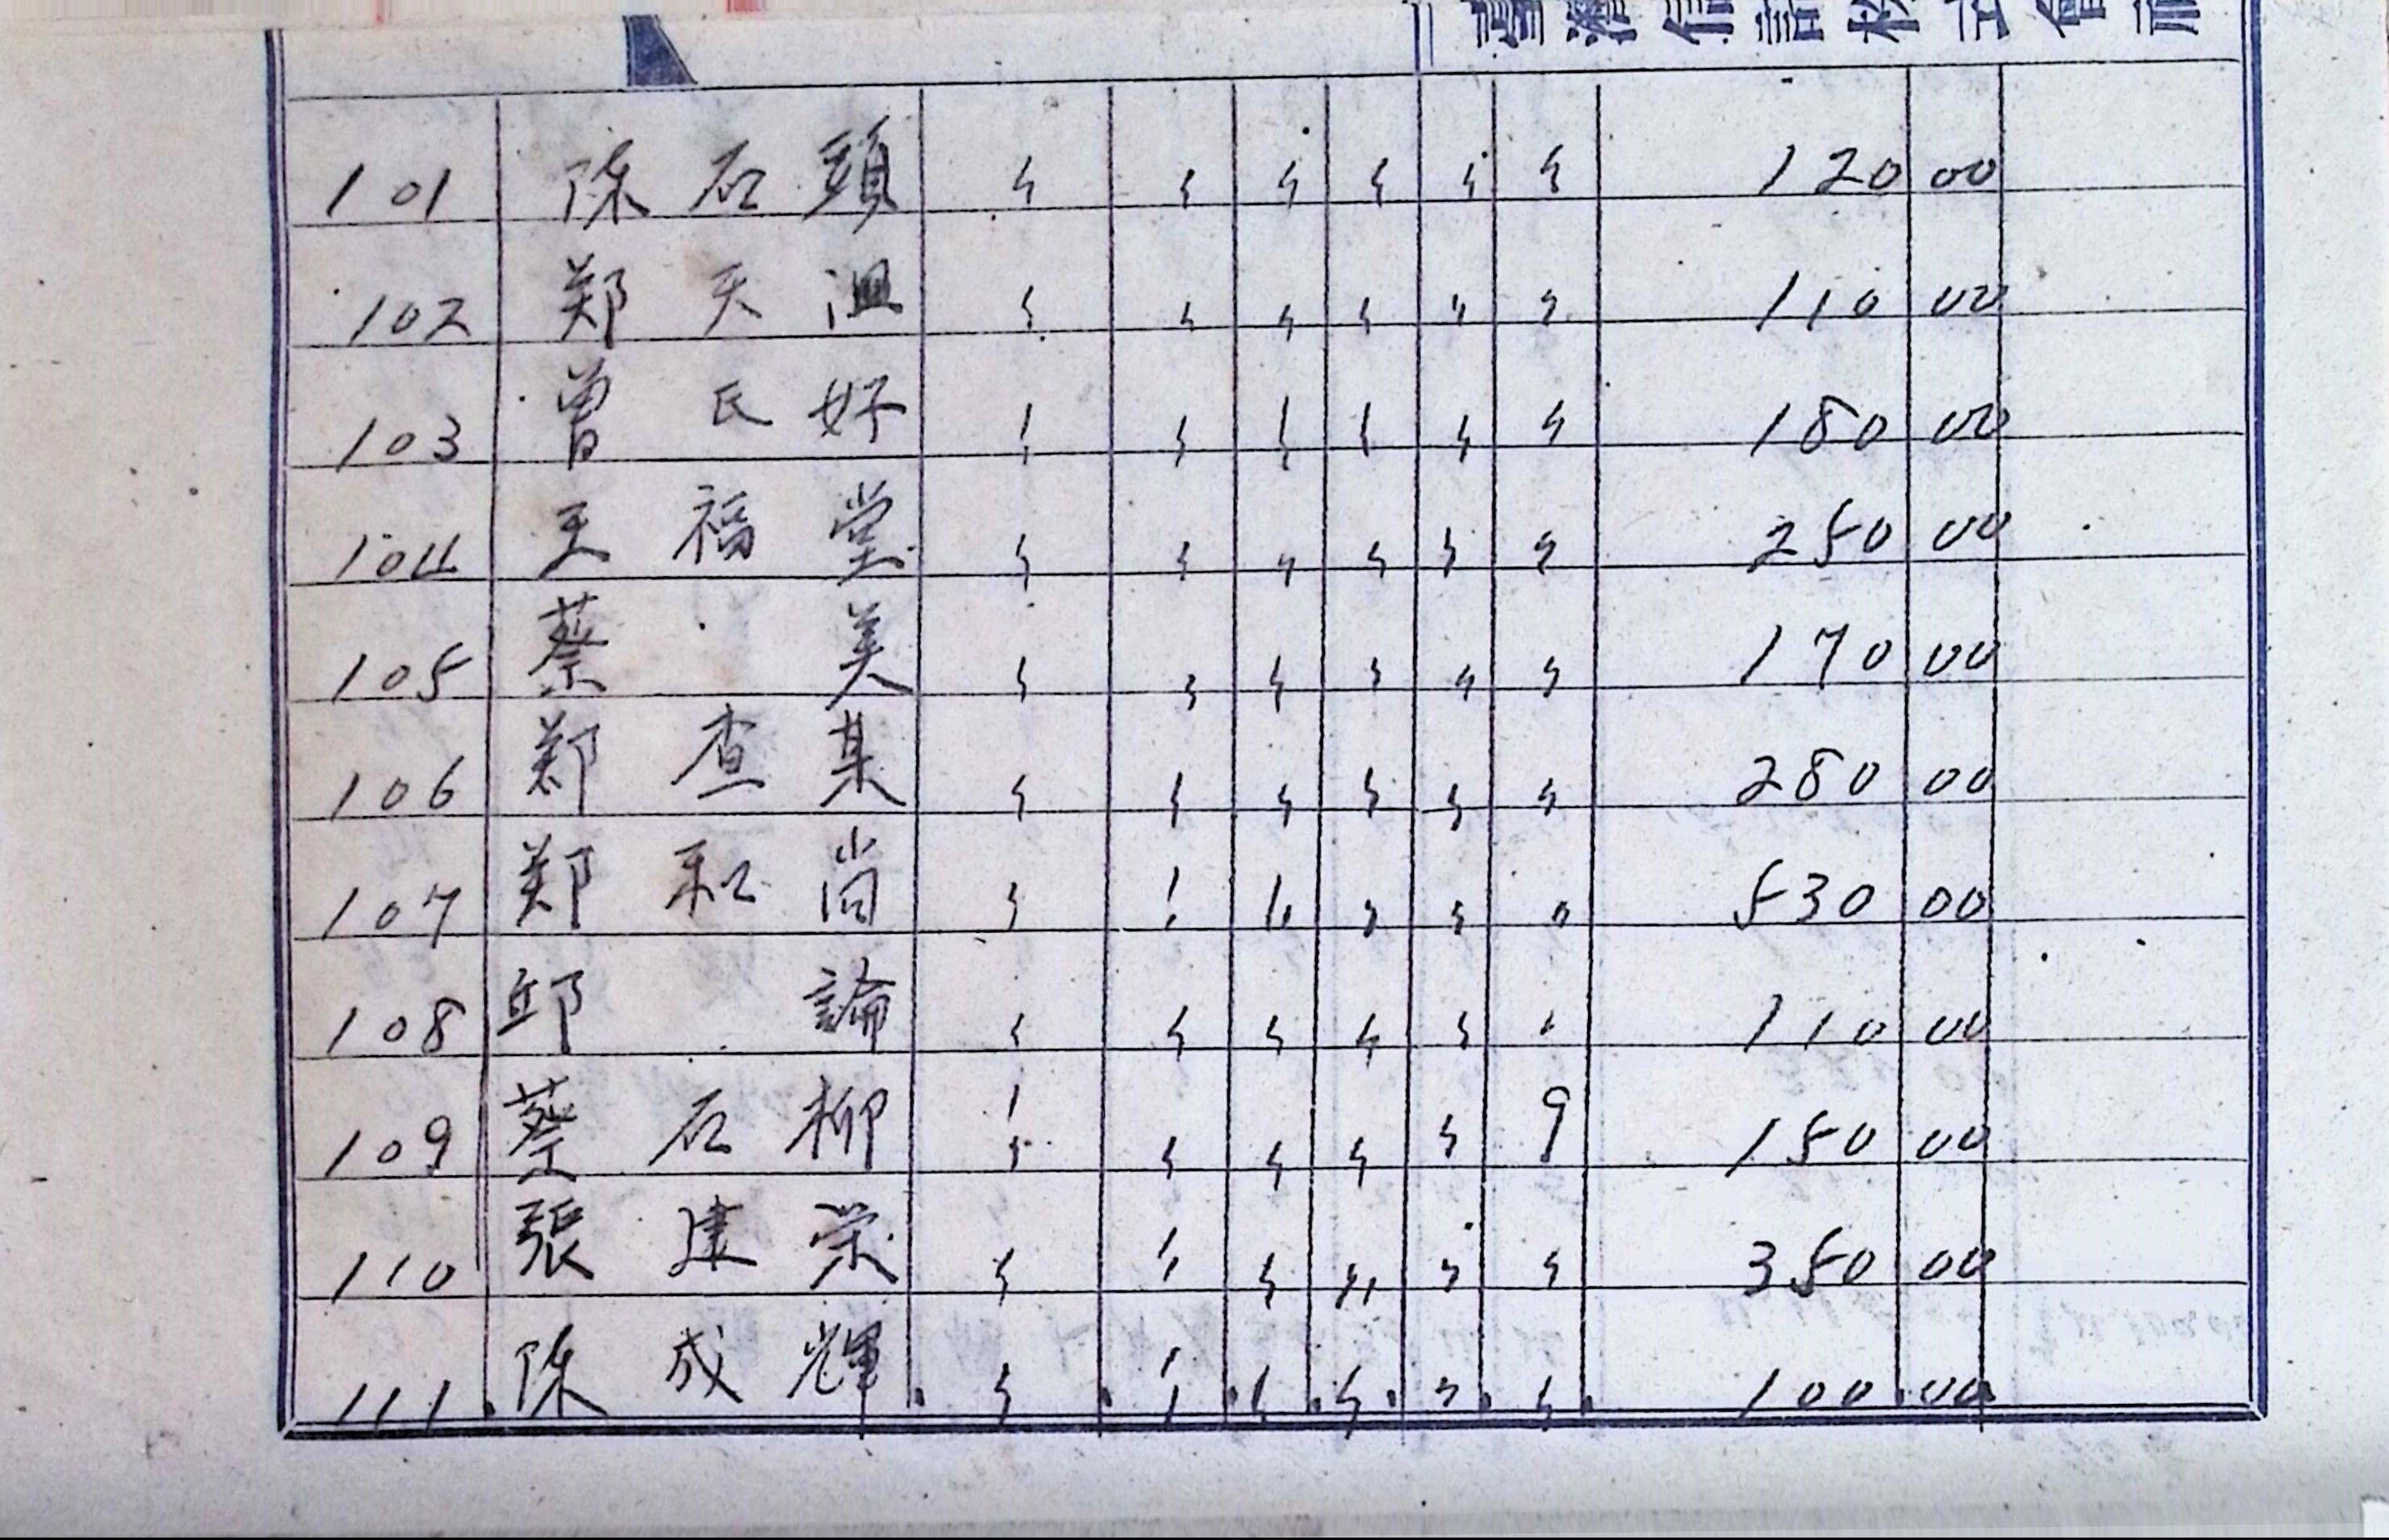 臺灣信託株式會社
101 陳石頭 〃 〃 〃 〃 〃 〃 120 00
102 鄭天温 〃 〃 〃 〃 〃 〃 110 00
103 曾氏好 〃 〃 〃 〃 〃 〃 180 00
104 王福堂 〃 〃 〃 〃 〃 〃 250 00
105 蔡美 〃 〃 〃 〃 〃 〃 170 00
106 鄭查某 〃 〃 〃 〃 〃 〃 280 00
107 鄭和尚 〃 〃 〃 〃 〃 〃 530 00
108 邱論 〃 〃 〃 〃 〃 〃 110 00
109 蔡石柳 〃 〃 〃 〃 〃 9 150 00
110 張建荣 〃 〃 〃 〃 〃 〃 350 00
111 陳成輝 〃 〃 〃 〃 〃 〃 100 00